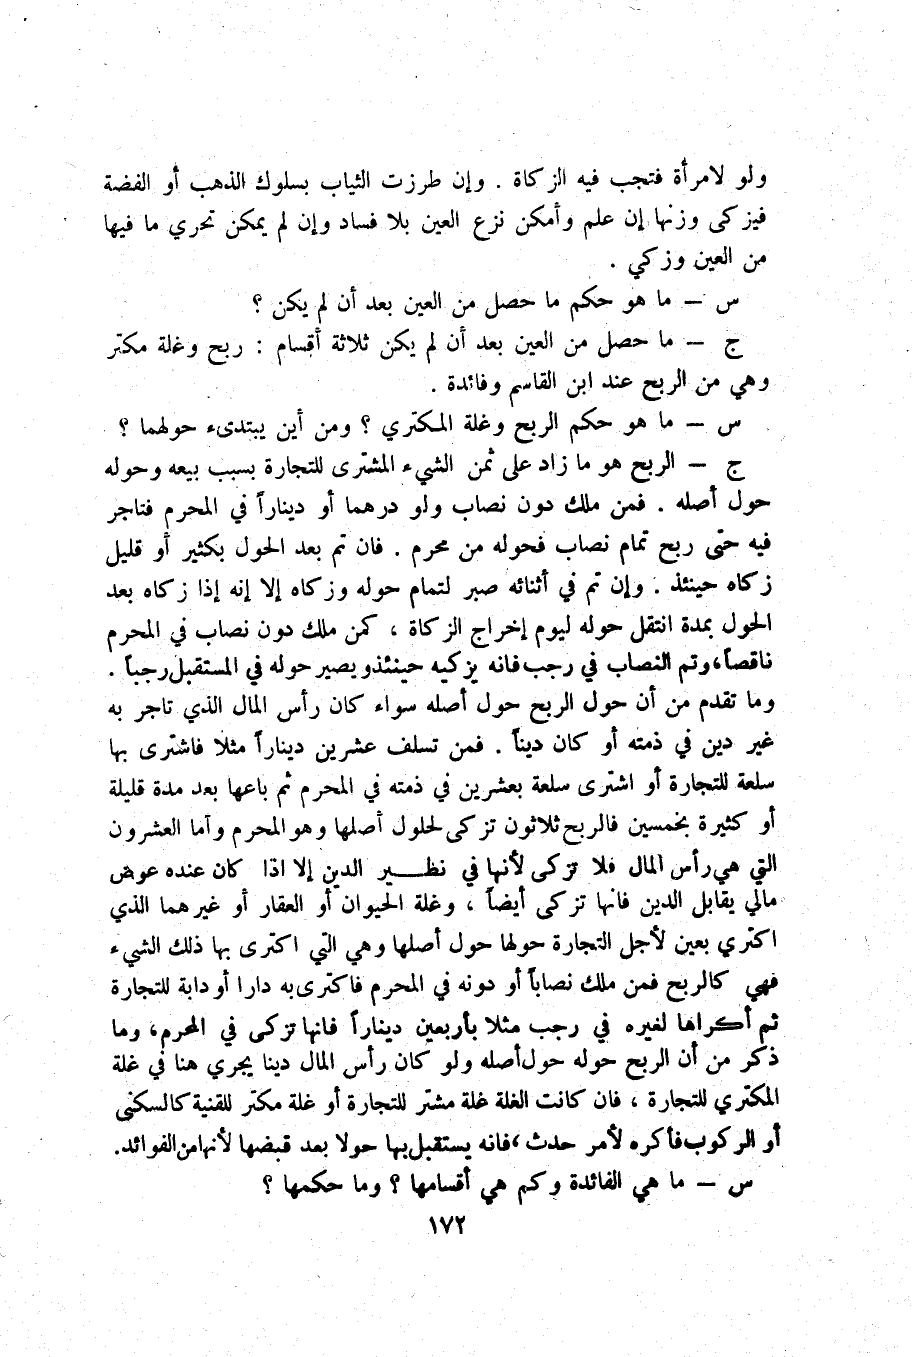 ولو لامرأة فتجب فيه الزكاة . وإن طرزت الثياب بسلوك الذهب أو الفضة
فيزكى وزنها إن علم وأمكن نزع العين بلا فساد وإن لم يمكن تحري ما فيها
من العين وزكي .
س — ما هو حكم ما حصل من العين بعد أن لم يكن ؟
ج — ما حصل من العين بعد أن لم يكن ثلاثة أقسام : ربح وغلة مكتر
وهي من الربح عند ابن القاسم وفائدة .
س — ما هو حكم الربح وغلة المكتري ؟ ومن أين يبتدىء حولهما ؟
ج — الربح هو ما زاد على ثمن الشيء المشترى للتجارة بسبب بيعه وحوله
حول أصله . فمن ملك دون نصاب ولو درهما أو ديناراً في المحرم فتاجر
فيه حتى ربح تمام نصاب فحوله من محرم . فان تم بعد الحول بكثير أو قليل
زكاه حينئذ . وإن تم في أثنائه صبر لتمام حوله وزكاه إلا إنه إذا زكاه بعد
الحول بمدة انتقل حوله ليوم إخراج الزكاة ، كمن ملك دون نصاب في المحرم
ناقصاً، وتم النصاب في رجب فانه يزكيه حينئذ ويصير حوله في المستقبل رجباً .
وما تقدم من أن حول الربح حول أصله سواء كان رأس المال الذي تاجر به
غير دين في ذمته أو كان ديناً . فمن تسلف عشرين ديناراً مثلا فاشترى بها
سلعة للتجارة أو اشترى سلعة بعشرين في ذمته في المحرم ثم باعها بعد مدة قليلة
أو كثيرة بخمسين فالربح ثلاثون تزكى لحلول أصلها وهو المحرم وأما العشرون
التي هي رأس المال فلا تزكى لأنها في نظـــير الدين إلا اذا كان عنده عوض
مالي يقابل الدين فانها تزكى أيضاً ، وغلة الحيوان أو العقار أو غيرهما الذي
اكتري بعين لأجل التجارة حولها حول أصلها وهي التي اكترى بها ذلك الشيء
فهي كالربح فمن ملك نصاباً أو دونه في المحرم فاكترى به دارا أو دابة للتجارة
ثم أكراها لغيره في رجب مثلا بأربعين ديناراً فانها تزكى في المحرم، وما
ذكر من أن الربح حوله حول أصله ولو كان رأس المال دينا يجري هنا في غلة
المكتري للتجارة ، فان كانت الغلة غلة مشتر للتجارة أو غلة مكتر للقنية كالسكنى
أو الركوب فأكره لأمر حدث ، فانه يستقبل بها حولا بعد قبضها لأنها من الفوائد.
س — ما هي الفائدة وكم هي أقسامها ؟ وما حكمها ؟
١٧٢